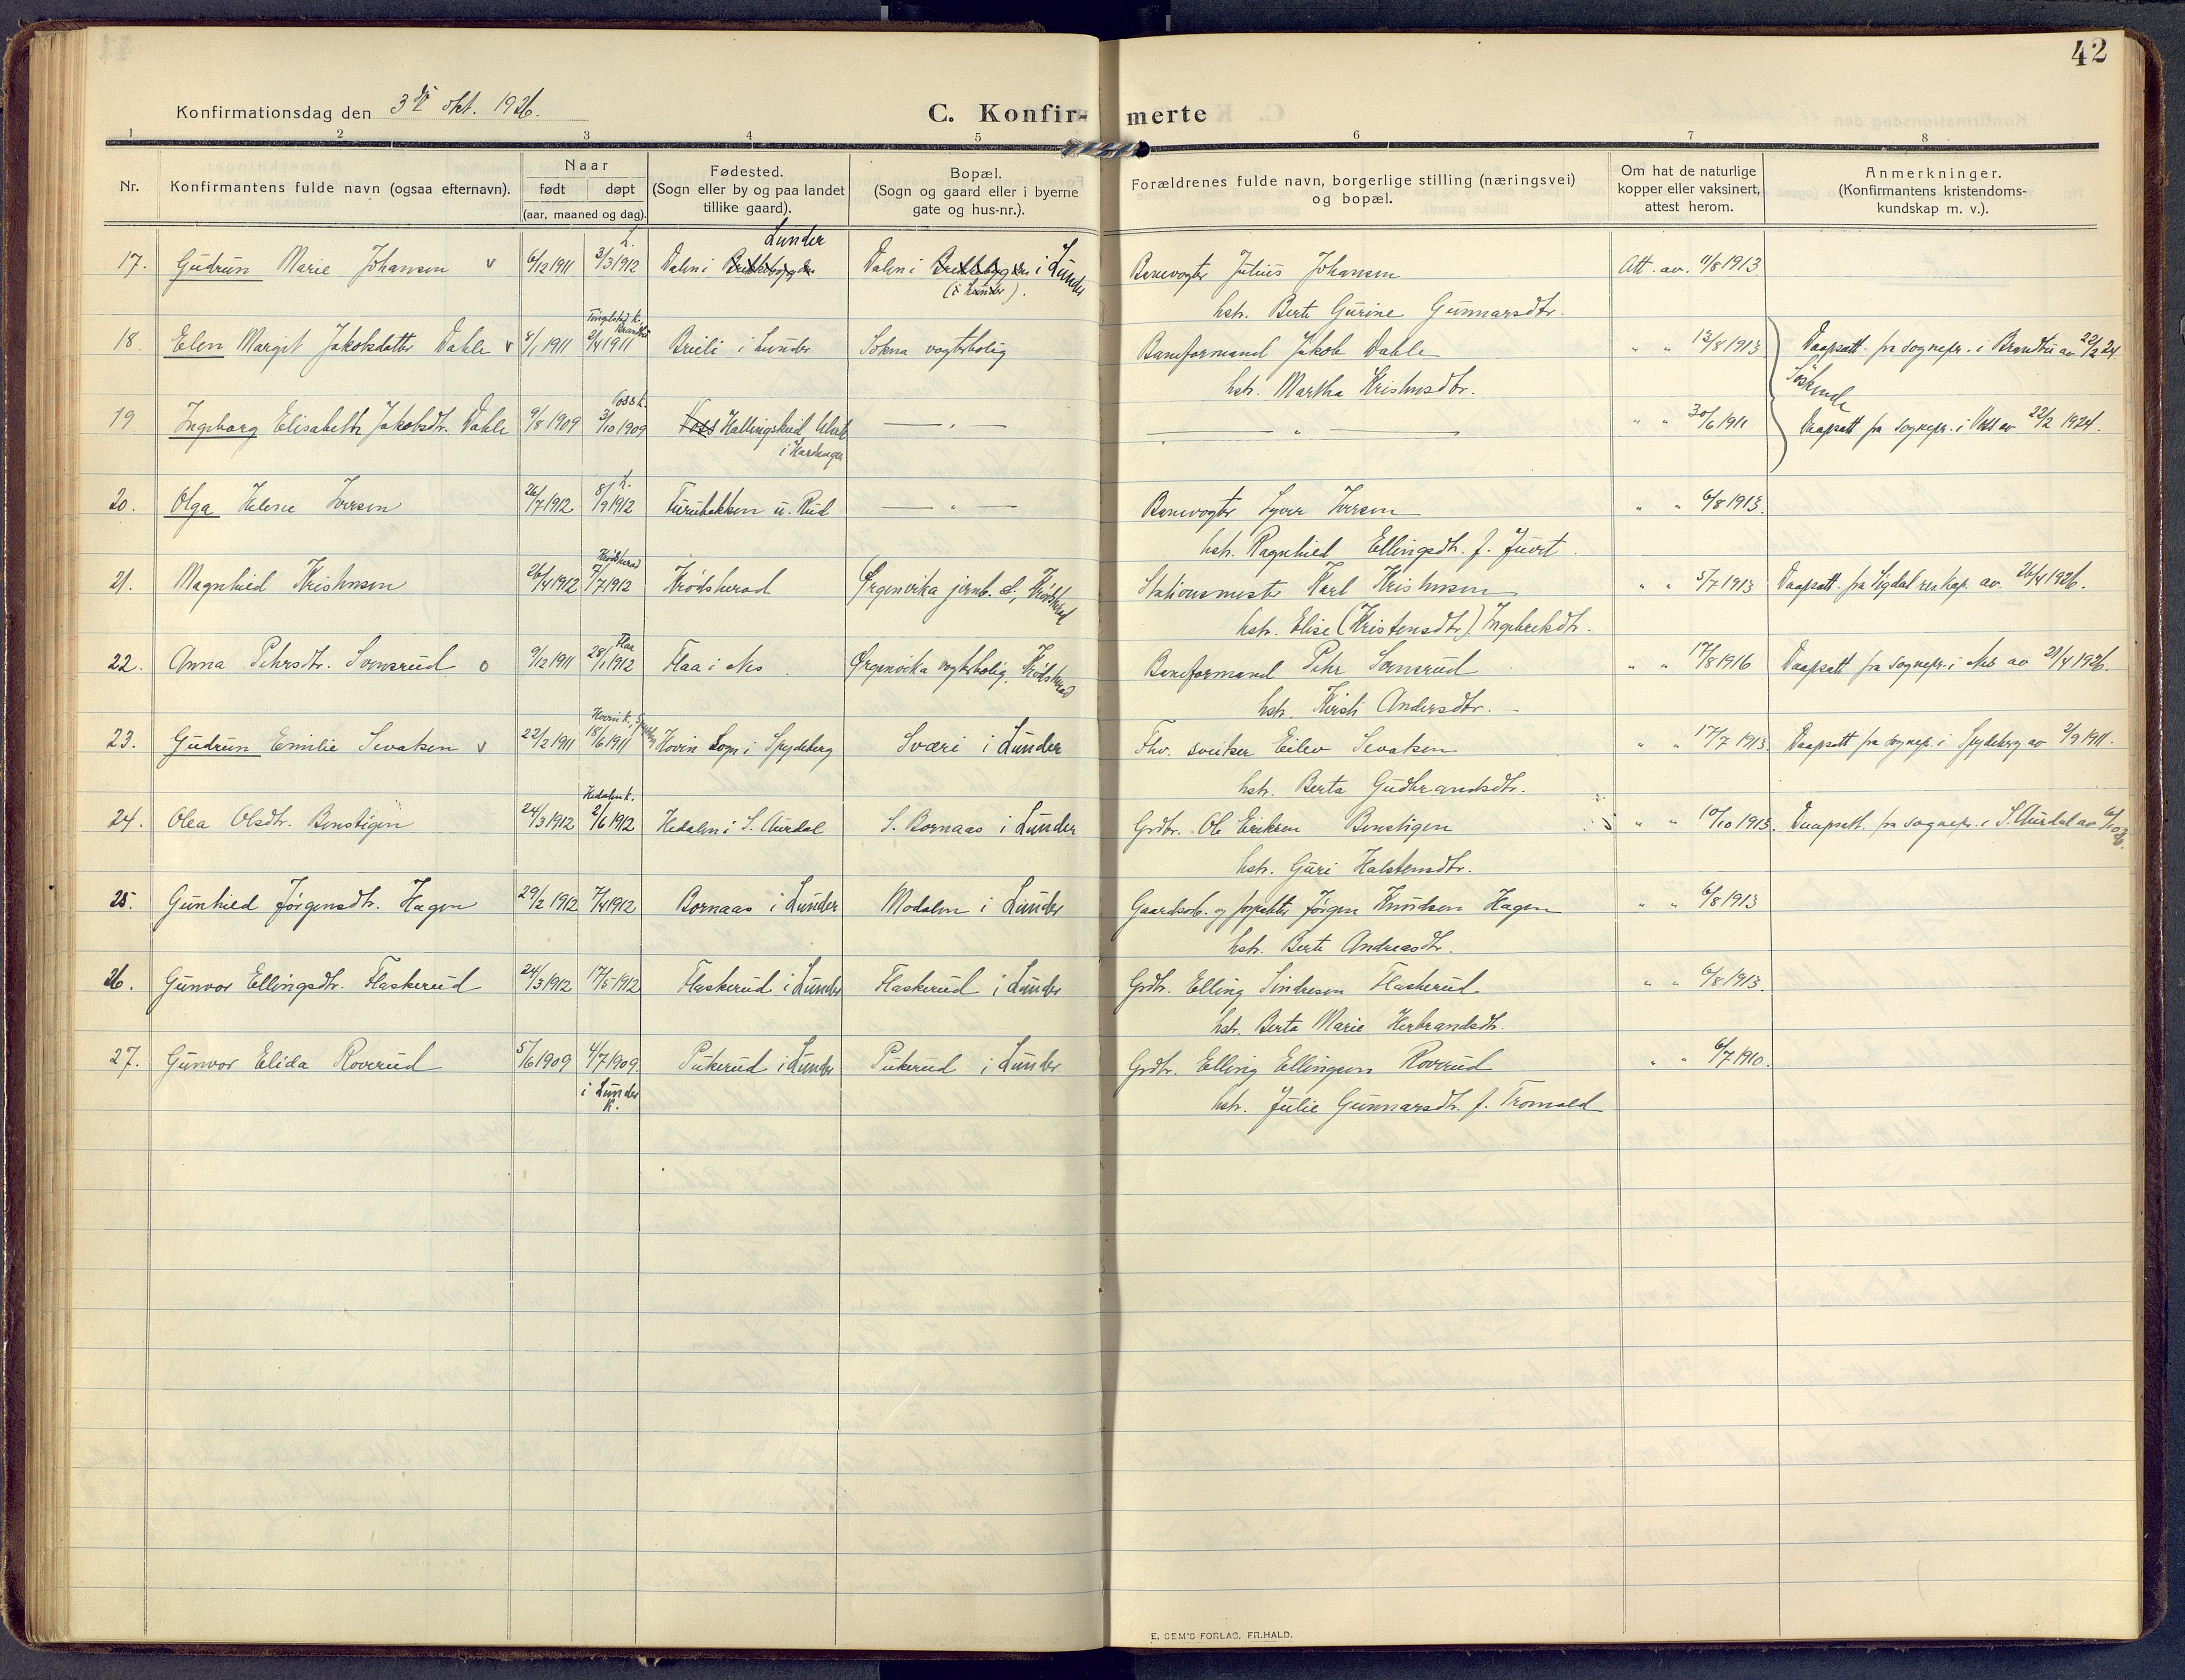 42
Konfirmationsdag den 3dje okt. 1926.
C. Konfir- merte
1 2 3 4 5 6 7 8
Nr.
Konfirmantens fulde navn (ogsaa efternavn).
Naar
født døpt
(aar, maaned og dag).
Fødested.
(Sogn eller by og paa landet
tillike gaard).
Bopæl.
(Sogn og gaard eller i byerne
gate og hus-nr.).
Forældrenes fulde navn, borgerlige stilling (næringsvei)
og bopæl.
Om hat de naturlige
kopper eller vaksinert,
attest herom.
Anmerkninger.
(Konfirmantens kristendoms-
kundskap m. v.).
L. Lunder
17. Gudrun Marie Johansen v 6/12 1911 3/3 1912 Dalen i Dalen i i Lunder Banevogter Julius Johansen Att. av. 11/8 1913
(i Lunder). hstr. Berte Gurine Gunnarsdtr.
Tingelstad k. Brandbu
18. Elen Margit Jakobsdatter Dahle v 8/1 1911 2/4 1911 Breili i Lunder Sokna vogterbolig Baneformand Jakob Dahle " " 13/8 1913 Daapsatt. fra sognepr. i Brandbu av 22/2 24
hstr. Martha Kristiansdtr. Söskende
Voss k.
19 Ingeborg Elisabeth Jakobsdtr. Dahle 9/8 1909 3/10 1909 Voss Hallingskeid Ulvik — " — — " — " " 30/6 1911 Daapsatt fra sognepr. i Voss av 22/2 1924.
i Hardanger
L.
20. Olga Helene Iversen 26/7 1912 8/9 1912 Furubakken u. Rud — " — Banevogter Syver Iversen " " 6/8 1913.
hstr. Ragnhild Ellingsdtr. f. Juvet
Krødsherad
21. Magnhild Kristensen 26/4 1912 7/7 1912 Krødsherad Ørgenvika jernb. st., Krødsherad Stationsmester Karl Kristensen " " 5/7 1913 Daapsatt fra Sigdal res. kap. av 26/4 1926.
hstr. Elise (Kristensdtr) Ingebretsdtr.
Flaa
22. Anna Pehrsdtr. Sornsrud o 9/12 1911 28/1 1912 Flaa i Nes Ørgenvika vogterbolig, Krødsherad Baneformand Pehr Sornsrud " " 17/8 1916 Daapsatt fra sognepr. i Nes av 21/4 1926.
hstr. Kirsti Andersdtr.
Hovin k., Spydeberg
23. Gudrun Emilie Sevatsen v 22/2 1911 18/6 1911 Hovin sogn i Spydeberg Sværi i Lunder Fhv. sveitser Eilev Sevatsen " " 17/7 1913. Daapsatt fra sognepr. i Spydeberg av 2/9 1911.
hstr. Berta Gudbrandsdtr.
Hedalen k.
24. Olea Olsdtr. Benstigen 24/3 1912 2/6 1912 Hedalen i S. Aurdal S. Bornaas i Lunder Grdbr. Ole Eriksen Benstigen " " 10/10 1913. Daapsatt. fra sognepr. i S. Aurdal av 6/10 26.
hstr. Guri Halstensdtr.
25. Gunhild Jørgensdtr. Hagen 29/2 1912 7/4 1912 Bornaas i Lunder Modalen i Lunder Gaardsarb. og forpakter Jørgen Knudsen Hagen " " 6/8 1913
hstr. Berte Andreasdtr.
26. Gunvor Ellingsdtr. Flaskerud 24/3 1912 17/5 1912 Flaskerud i Lunder Flaskerud i Lunder Grdbr. Elling Sindresen Flaskerud " " 6/8 1913.
hstr. Berta Marie Herbrandsdtr.
27. Gunvor Elida Roverud 5/6 1909 4/7 1909 Pukerud i Lunder Pukerud i Lunder Grdbr. Elling Ellingsen Roverud " " 6/7 1910.
i Lunder K. hstr. Julie Gunnarsdtr. f. Tromald
E. SEM'S FORLAG, FR.HALD.